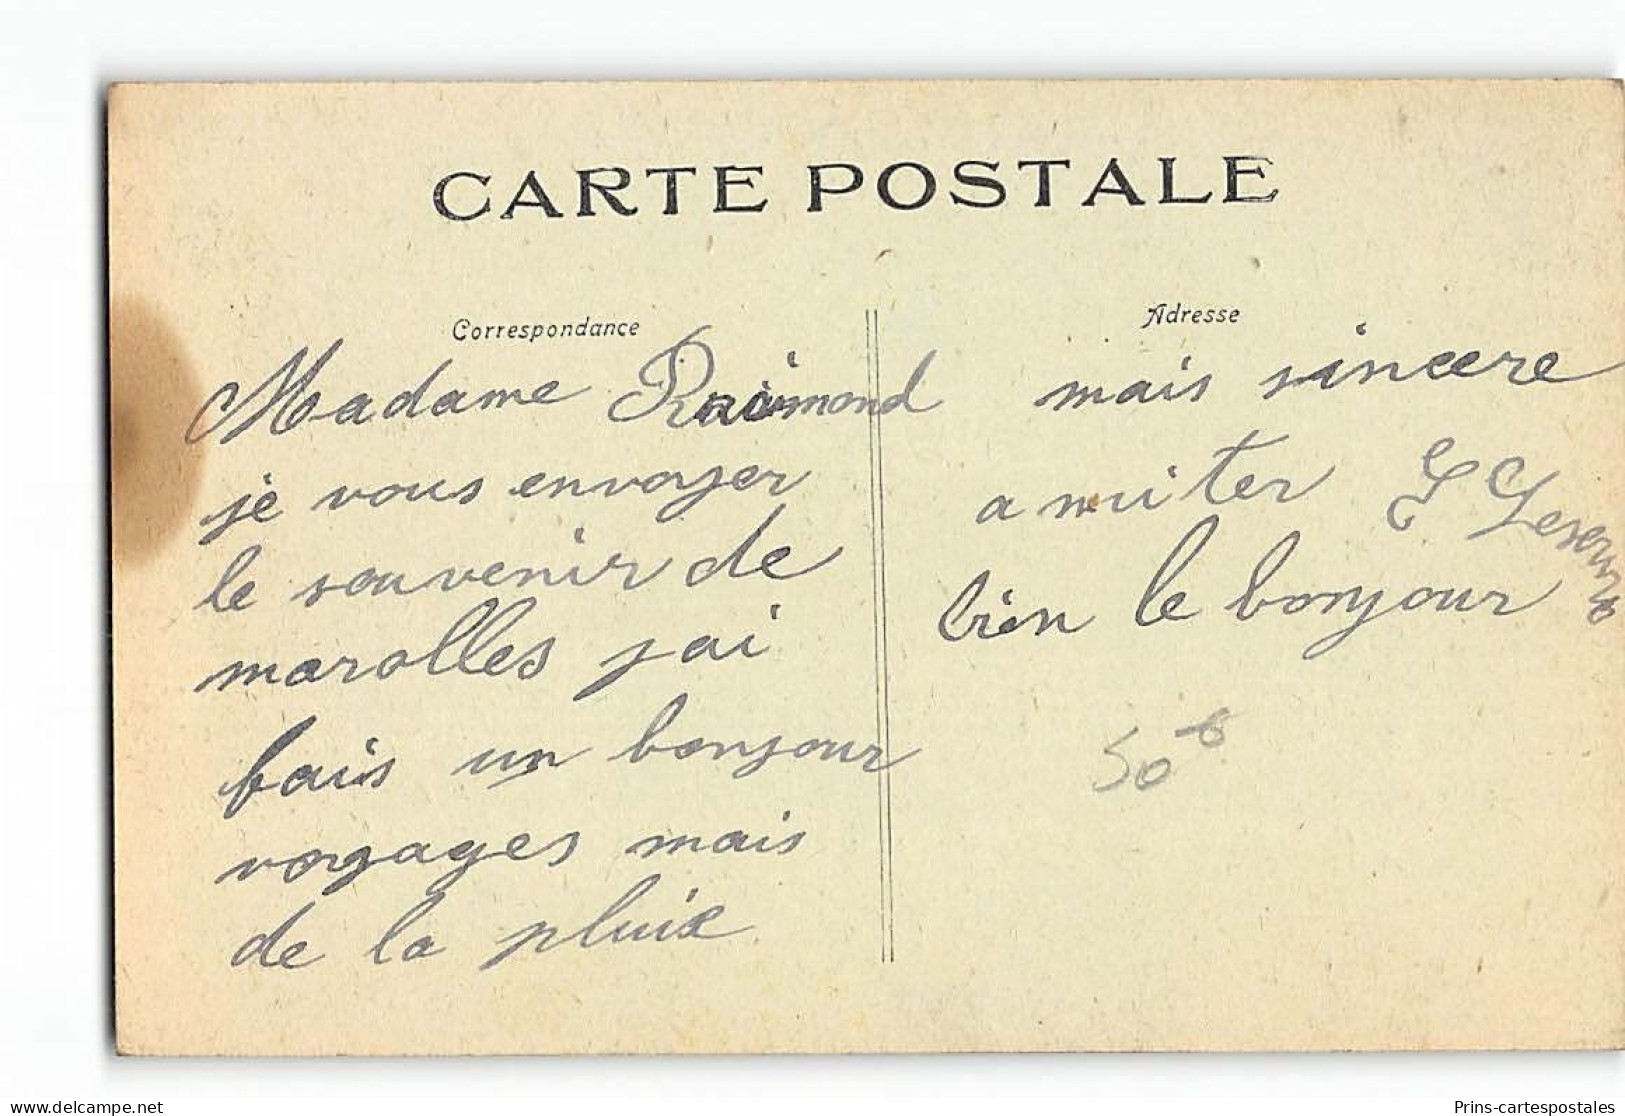 CARTE POSTALE
Correspondance
Madame Raimond
je vous envoyer
le souvenir de
marolles jai
fais un bonjour
voyages mais
de la pluie
Adresse
mais sincere
amiter
bien le bonjour
50
delcampe.net
Prins-cartespostales